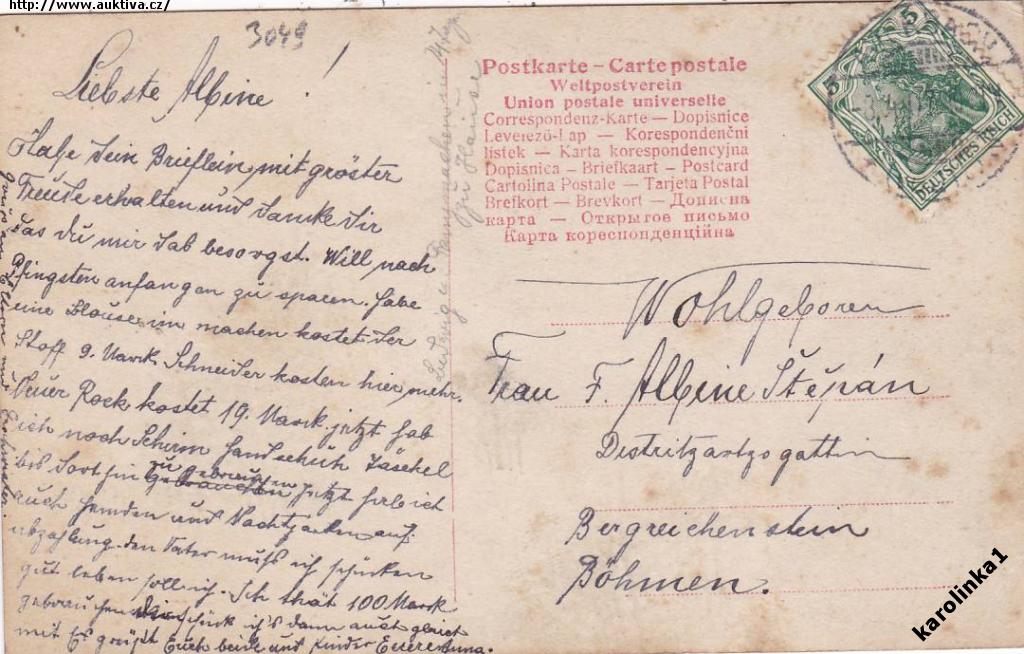 http://www.auktiva.cz/
3049
Liebste Albine!
Habe dein Brieflein mit gröster
Freude erhalten und danke dir
das du mir dab besorgst. Will nach
Pfingsten anfangen zu sparen. habe
eine Blouse im machen kostet der
Stoff 9. Marck Schneider kosten hier mehr.
Neuer Rock kostet 19. Marck. jetzt hab
ich noch Schirm Handschuh Täschel
bis dorthin zu gebrauchen jetzt hab ich
auch Hemden und Nachtjacken auf
abzahlung. den Vater muhs ich schicken
gut leben soll ich. Ich thät 100 Marck
gebrauchen schück ich's dann auch gleich
mit Es grüßt Euch beide und Kinder Euere Anna.
Postkarte – Carte postale
Weltpostverein
Union postale universelle
Correspondenz-Karte — Dopisnice
Levelező-Lap — Korespondenční
lístek — Karta korespondencyjna
Dopisnica — Briefkaart — Postcard
Cartolina Postale — Tarjeta Postal
Brefkort — Brevkort — Дописна
карта — Открытое письмо
Карта кореспонденційна
5 5
DEUTSCHES REICH
Wohlgeboren
Frau F. Albine Štěpán
Distritzartzogattin
Bergreichenstein
Böhmen.
karolinka1